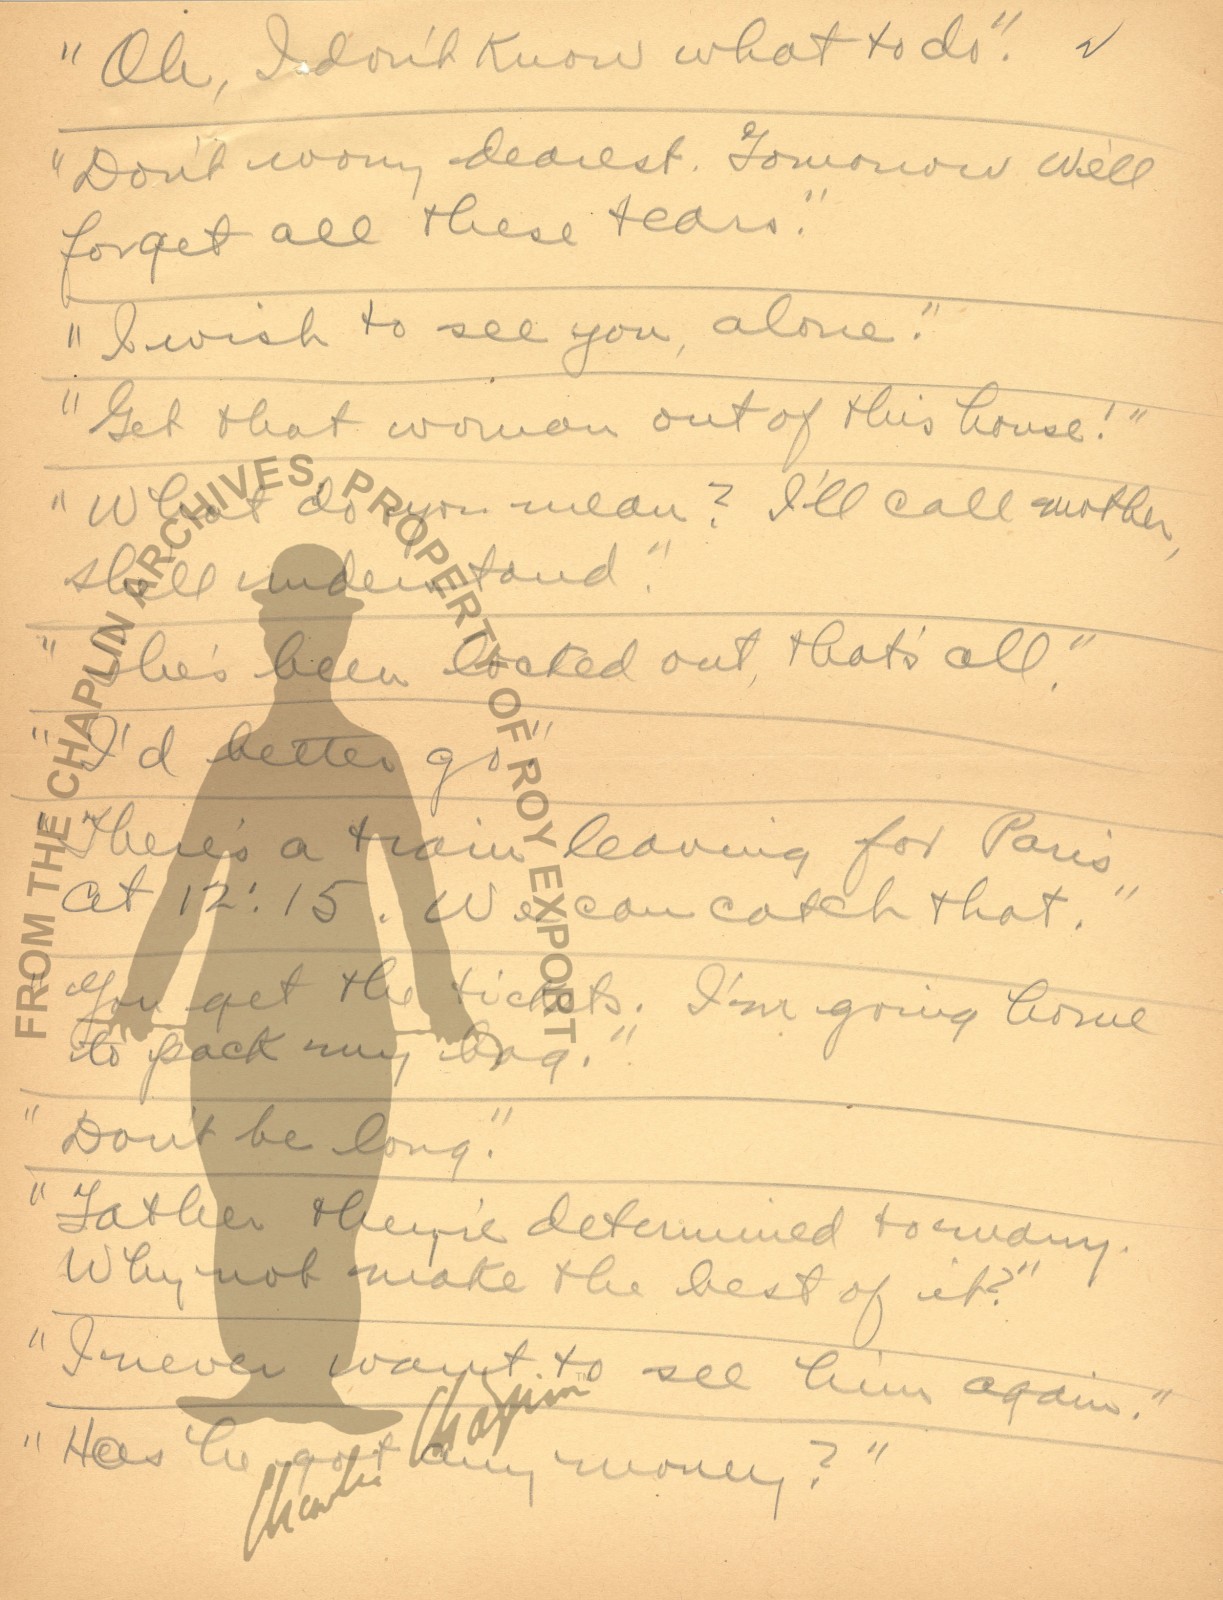 "Oh, I don't know what to do".
"Don't worry dearest. Tomorrow we'll
forget all these tears."
"I wish to see you, alone."
"Get that woman out of this house!"
"What do you mean? I'll call mother,
she'll understand".
"She's been locked out, that's all."
"I'd better go"
"There's a train leaving for Paris
at 12:15. We can catch that."
"You get the tickets. I'm going home
to pack my bag."
"Don't be long."
"Father they're determined to marry.
Why not make the best of it?"
"I never want to see him again."
"Has he got any money?"
FROM THE CHAPLIN ARCHIVES, PROPERTY OF ROY EXPORT
Charlie Chaplin™